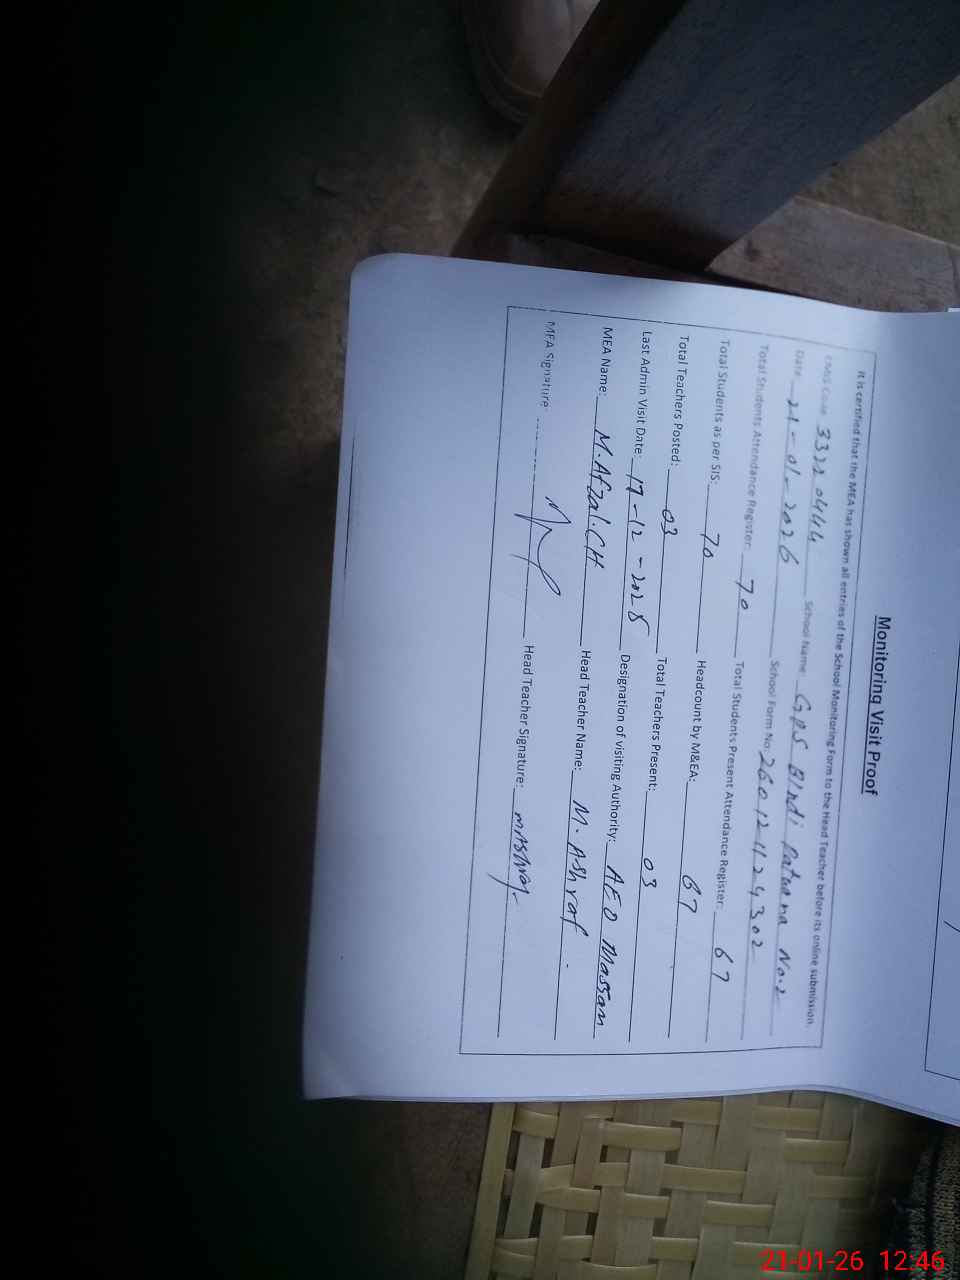 Monitoring Visit Proof
It is certified that the MEA has shown all entries of the School Monitoring Form to the Head Teacher before its online submission.
EMIS Code 33220444 School Name: GPS Bindi Patuana No.2
Date 21-01-2026 School Form No 260121124302
Total Students Attendance Register: 70 Total Students Present Attendance Register: 67
Total Students as per SIS: 70 Headcount by M&EA: 67
Total Teachers Posted: 03 Total Teachers Present: 03
Last Admin Visit Date: 17-12-2025 Designation of visiting Authority: AEO Massan
MEA Name: M.Afzal.CH Head Teacher Name: M.Ashraf.
MEA Signature: Head Teacher Signature: MAshraf
21-01-26 12:46